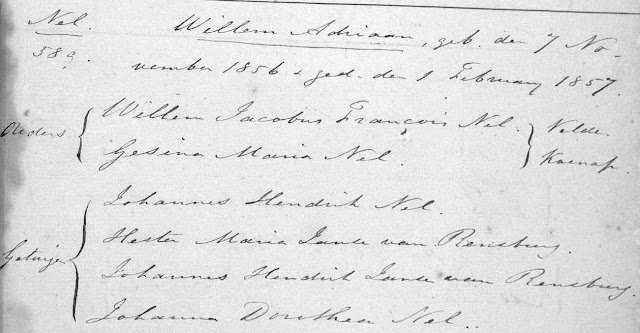 Nel. Willem Adriaan, geb. den 7 No-
589. vember 1856 & ged. den 1 February 1857.
Ouders Willem Jacobus François Nel.
Gesina Maria Nel.
Velde.
Koenap.
Johannes Hendrik Nel.
Getuigen Hester Maria Janse van Rensburg.
Johannes Hendrik Janse van Rensburg.
Johanna Dorothea Nel.